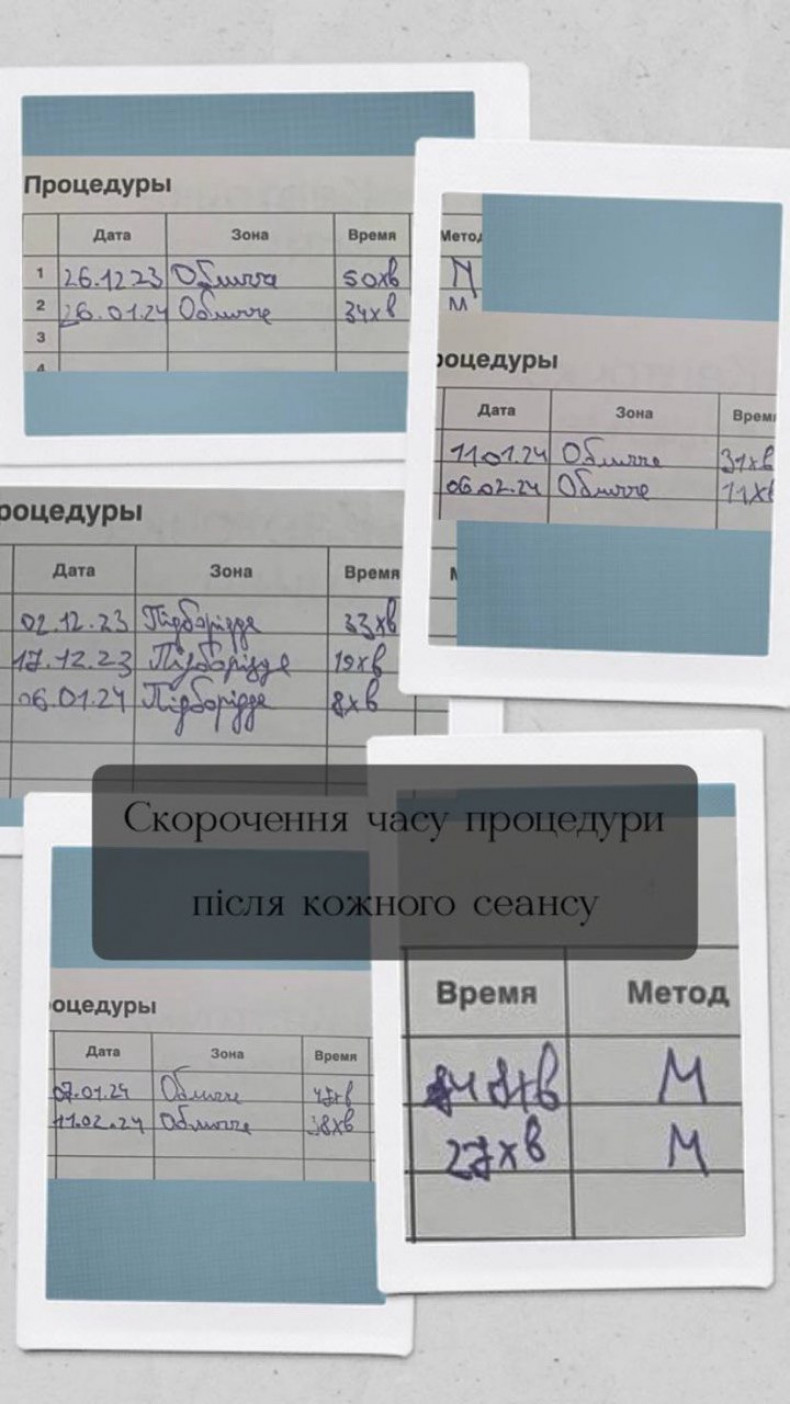 Процедуры
Дата Зона Время Метод
1 26.12.23 Обличчя 50хв М
2 26.01.24 Обличче 34хв М
3
4
роцедуры
Дата Зона Время
11.01.24 Обличче 31хв
06.02.24 Обличче 11хв
роцедуры
Дата Зона Время
02.12.23 Підборідде 33хв
17.12.23 Підборідде 19хв
06.01.24 Підборідде 8хв
Скорочення часу процедури
після кожного сеансу
оцедуры
Дата Зона Время
07.01.24 Обличче
11.02.24 Обличче 38хв
Время Метод
М
27хв М